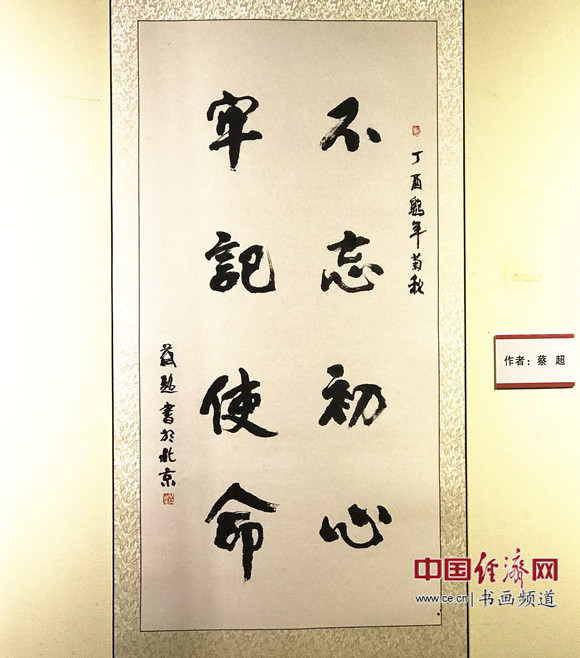 丁酉鷄年菊秋
不忘初心
牢記使命
蔡超書於北京
作者：蔡 超
中国经济网
www.ce.cn 书画频道